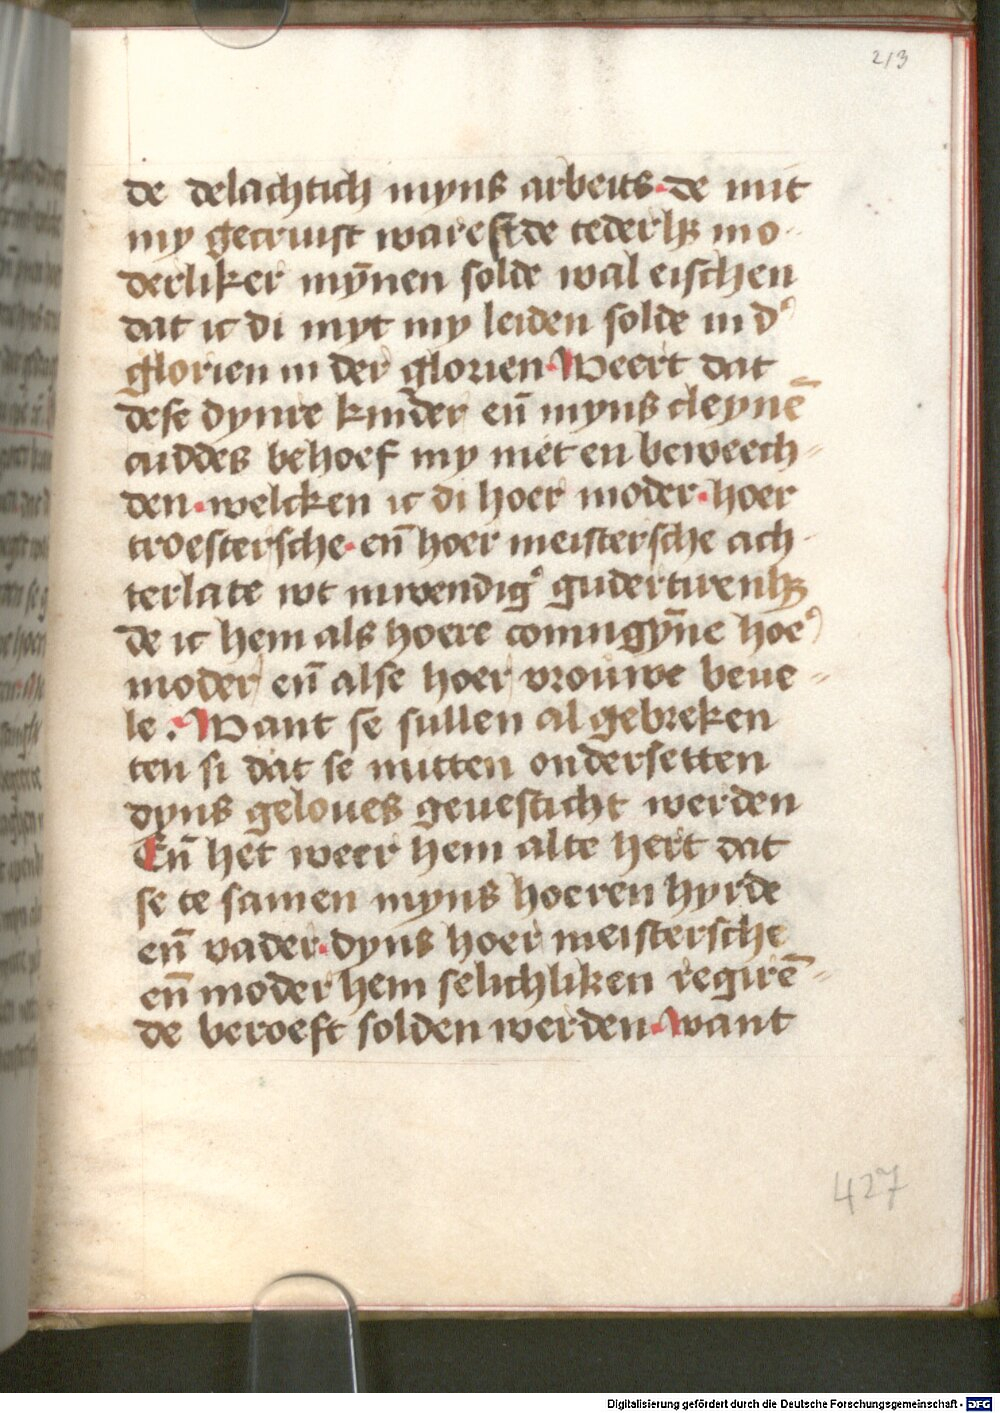 213
de delachtich myns arbeits · de mit
my gecruist warest de tederlꝫ mo-
derliker mȳnen solde wal eischen
dat ic di myt my leiden solde in dʾ
glorien in der glorien · Weert dat
dese dynre kinder eñ myns cleynē
cuddes behoef my niet en beweech-
den · welcken ic di hoer moder · hoer
troestersche · eñ hoer meistersche ach-
terlate wt inwendigʾ gudertirenhꝫ
de ic hem als hoere coningyn̄e hoeʾ
moder eñ alse hoer vrouwe beue-
le . Want se sullen al gebreken
ten si dat se mitten ondersetten
dyns geloues geuesticht werden
Eñ het weer hem alte hert dat
se te samen myns hoeren hyrde
eñ vader · dyns hoer meistersche
eñ moder hem selichliken regirē-
de beroeft solden werden · want
427
Digitalisierung gefördert durch die Deutsche Forschungsgemeinschaft - DFG